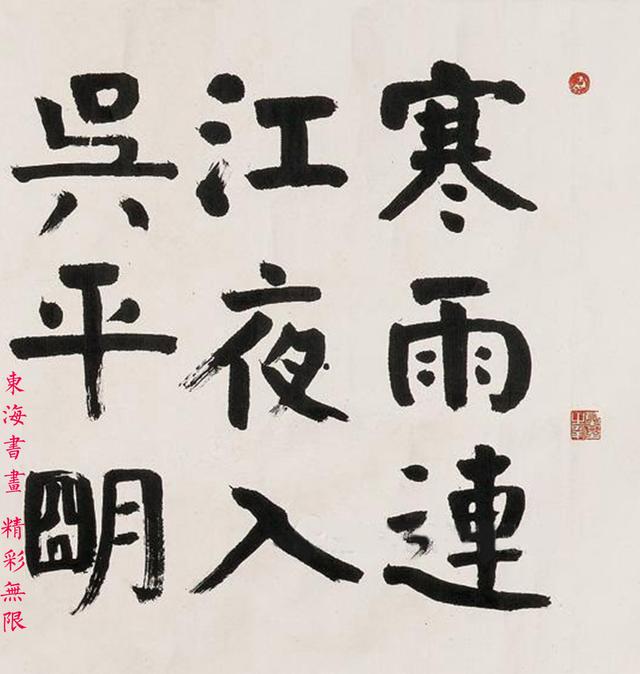 寒雨連
江夜入
吳平明
東海書畫 精彩無限